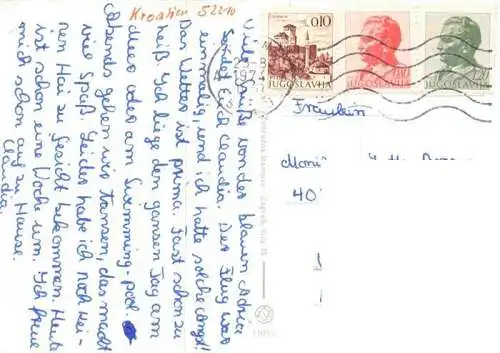 Kroatien 52210
Viele Grüße von der blauen Adria
sendet Euch Claudia. Der Flug war
einmalig, und ich hatte solche Angst!
Das Wetter ist prima. Fast schon zu
heiß. Ich liege den ganzen Tag am
Meer oder am Swimming-pool.
Abends gehen wir tanzen, das macht
viel Spaß. Leider habe ich noch kei-
nen Hai zu Gesicht bekommen. Heute
ist schon eine Woche um. Ich freue
mich schon auf zu Hause.
Claudia.
0,10
JUGOSLAVIJA
JUGOSLAVIJA
JUGOSLAVIJA
1974
Fräulein
Moni
40